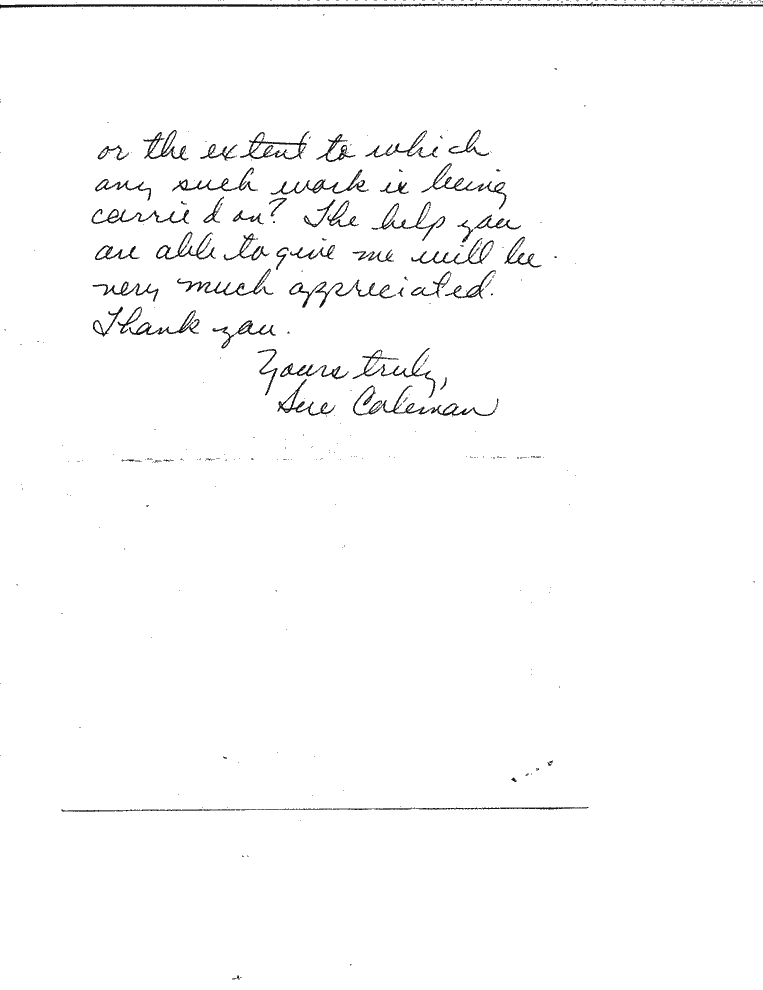 or the extent to which
any such work is being
carried on? The help you
are able to give me will be
very much appreciated.
Thank you.
Yours truly,
Sue Coleman